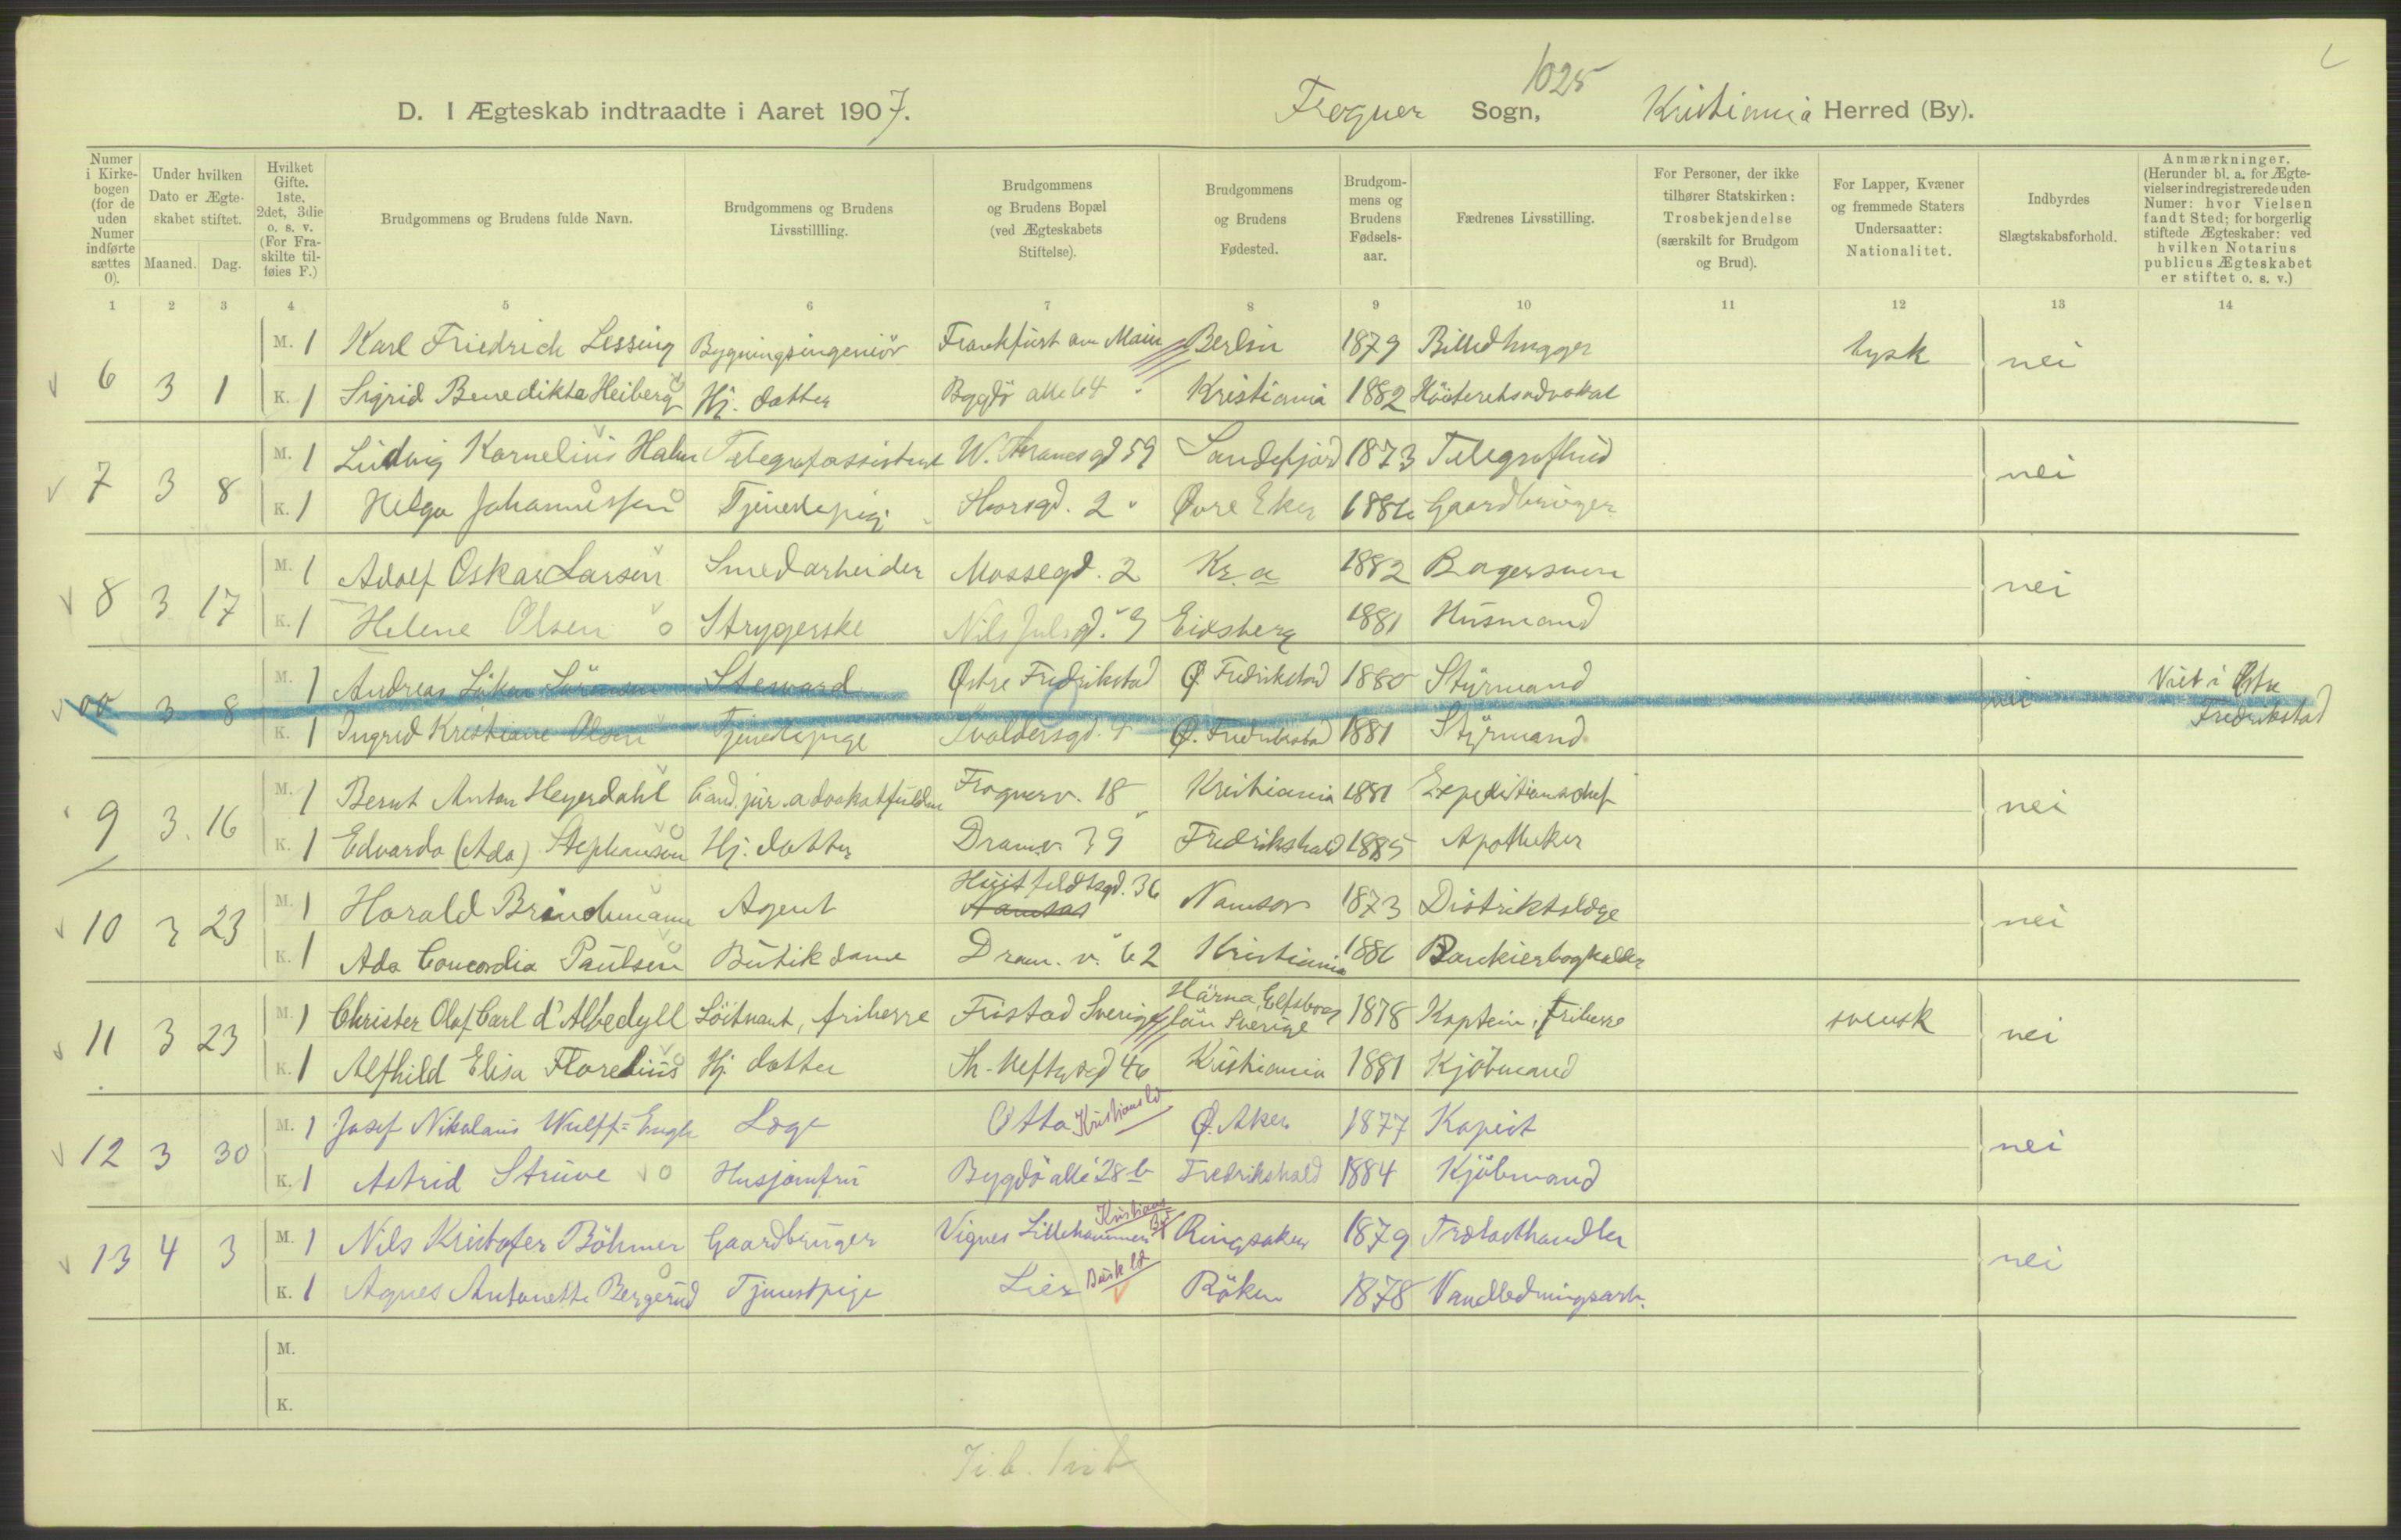 1025
D. I Ægteskab indtraadte i Aaret 1907. Frogner Sogn, Kristiania Herred (By).
Numer i Kirkebogen (for de uden Numer indførte sættes 0).
Under hvilken Dato er Ægteskabet stiftet. Maaned. Dag.
Hvilket Gifte. 1ste. 2det, 3die o. s. v. (For Fraskilte tilføies F.)
Brudgommens og Brudens fulde Navn.
Brudgommens og Brudens Livsstillling.
Brudgommens og Brudens Bopæl (ved Ægteskabets Stiftelse).
Brudgommens og Brudens Fødested.
Brudgommens og Brudens Fødselsaar.
Fædrenes Livsstilling.
For Personer, der ikke tilhører Statskirken: Trosbekjendelse (særskilt for Brudgom og Brud).
For Lapper, Kvæner og fremmede Staters Undersaatter: Nationalitet.
Indbyrdes Slægtskabsforhold.
Anmærkninger. (Herunder bl. a. for Ægtevielser indregistrerede uden Numer: hvor Vielsen fandt Sted; for borgerlig stiftede Ægteskaber: ved hvilken Notarius publicus Ægteskabet er stiftet o. s. v.)
1 2 3 4 5 6 7 8 9 10 11 12 13 14
M. 1 Karl Friedrich Lessing Bygningsingeniör Frankfurt am Main Berlin 1879 Billedhugger tysk
6 3 1 nei
K. 1 Sigrid Benedikte Heiberg Hj. datter Bygdö alle 64 Kristiania 1882 Höiesteretsadvokat
M. 1 Ludvig Kornelius Telegrafassistent W. Thranes gd 59 Sandefjord 1873 Telegrafbud
7 3 8 nei
K. 1 Helga Johannessen Tjenestepig Thorsgd. 2 Øvre Eker 1886 Gaardbruger
M. 1 Adolf Oskar Larsen Smedarbeider Mossegd. 2 Kr.a 1882 Bagersvend
8 3 17 nei
K. 1 Helene Olsen Strygerske Nils Juls gd. 9 Eidsberg 1881 Husmand
M. 1 Andreas Steward Østre Fredrikstad Ø. Fredrikstad 1880 Styrmand Viet i Østre
3 8 nei Fredrikstad
K. 1 Ingrid Kristiane Olsen Tjenestepige Ø. Fredrikstad 1881 Styrmand
M. 1 Bernt Anton Heyerdahl Cand. jur. advokatfuldm Frognerv. 18 Kristiania 1881 Expeditionschef
9 3. 16 nei
K. 1 Edvarda (Ada) Stephansen Hj. datter Dramv. 39 Fredrikshald 1885 Apotheker
Huitfeldtsgd. 36
M. 1 Harald Brinchmann Agent Namsos Namsos 1873 Distriktslæge
10 3 23 nei
K. 1 Ada Concordia Paulsen Butikdame Dram. v. 62 Kristiania 1886 Bankierbogholder
Härna, Elfsborg
M. 1 Christer Olof Carl d'Albedyll Löitnant, friherre Fristad Sverige län Sverige 1878 Kaptein, Friherre svensk
11 3 23 nei
K. 1 Alfhild Elisa Florelius Hj. datter Th. Heftyes gd 46 Kristiania 1881 Kjöbmand
M. 1 Josef Nikolaus Wulff= Læge Otta Kristians Ø. Aker 1877 Kopist
12 3 30 nei
K. 1 Astrid Struve Husjomfru Bygdö alle 28 b Fredrikshald 1884 Kjöbmand
Kristians
M. 1 Nils Kristofer Böhmer Gaardbruger Vignes Lillehammer Ringsaker 1879 Trælasthandler
13 4 3 nei
K. 1 Agnes Antonette Bergerud Tjenestpige Lier Busk Röken 1878 Vandledningsarb.
M.
K.